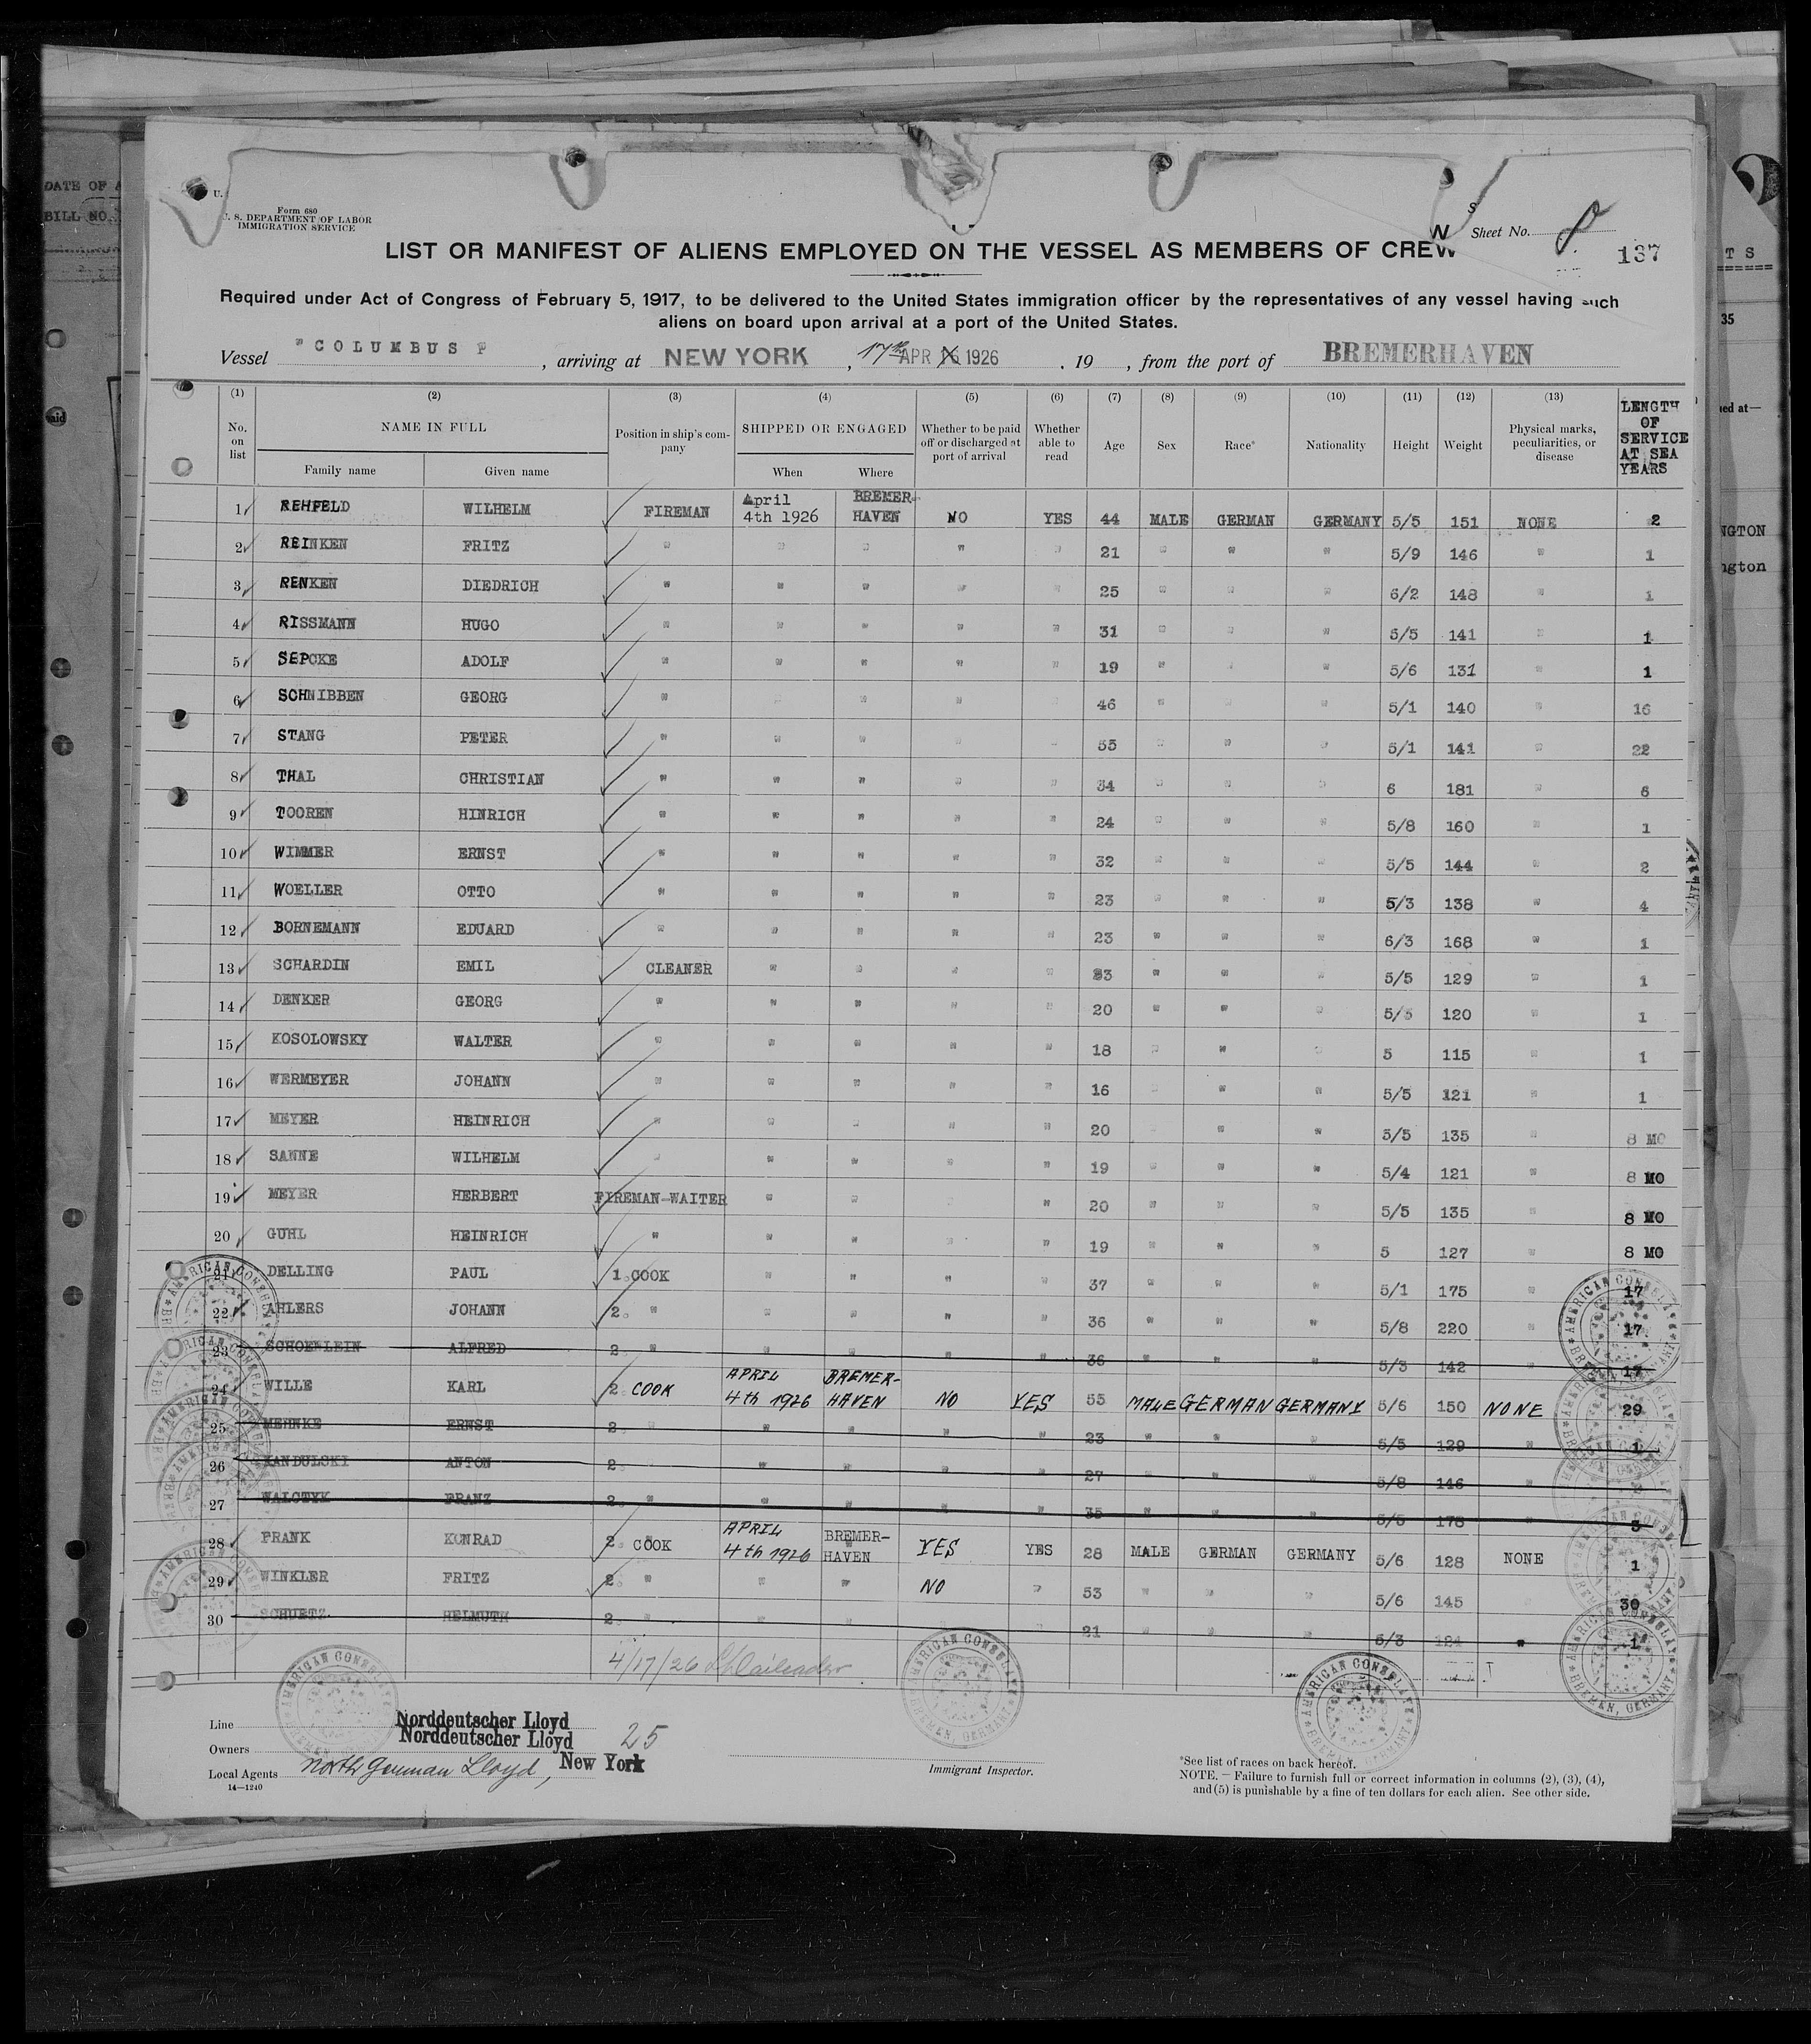 Form 680
U. S. DEPARTMENT OF LABOR
IMMIGRATION SERVICE
Sheet No. 8
137
LIST OR MANIFEST OF ALIENS EMPLOYED ON THE VESSEL AS MEMBERS OF CREW
Required under Act of Congress of February 5, 1917, to be delivered to the United States immigration officer by the representatives of any vessel having such
aliens on board upon arrival at a port of the United States.
Vessel "COLUMBUS", arriving at NEW YORK, 17th APR 1926, 19 , from the port of BREMERHAVEN
(1) (2) (3) (4) (5) (6) (7) (8) (9) (10) (11) (12) (13)
No. on list NAME IN FULL Family name Given name Position in ship's company SHIPPED OR ENGAGED When Where Whether to be paid off or discharged at port of arrival Whether able to read Age Sex Race* Nationality Height Weight Physical marks, peculiarities, or disease LENGTH OF SERVICE AT SEA YEARS
1 REHFELD WILHELM FIREMAN April 4th 1926 BREMER-HAVEN NO YES 44 MALE GERMAN GERMANY 5/5 151 NONE 2
2 REINKEN FRITZ " " " " " 21 " " " 5/9 146 " 1
3 RENKEN DIEDRICH " " " " " 25 " " " 6/2 148 " 1
4 RISSMANN HUGO " " " " " 31 " " " 5/5 141 " 1
5 SEPCKE ADOLF " " " " " 19 " " " 5/6 131 " 1
6 SCHNIBBEN GEORG " " " " " 46 " " " 5/1 140 " 16
7 STANG PETER " " " " " 55 " " " 5/1 141 " 22
8 THAL CHRISTIAN " " " " " 34 " " " 6 181 " 6
9 TOOREN HINRICH " " " " " 24 " " " 5/8 160 " 1
10 WIMMER ERNST " " " " " 32 " " " 5/5 144 " 2
11 WOELLER OTTO " " " " " 23 " " " 5/3 138 " 4
12 BORNEMANN EDUARD " " " " " 23 " " " 6/3 168 " 1
13 SCHARDIN EMIL CLEANER " " " " 23 " " " 5/5 129 " 1
14 DENKER GEORG " " " " " 20 " " " 5/5 120 " 1
15 KOSOLOWSKY WALTER " " " " " 18 " " " 5 115 " 1
16 WERMEYER JOHANN " " " " " 16 " " " 5/5 121 " 1
17 MEYER HEINRICH " " " " " 20 " " " 5/5 135 " 8 MO
18 SANNE WILHELM " " " " " 19 " " " 5/4 121 " 8 MO
19 MEYER HERBERT FIREMAN-WAITER " " " " 20 " " " 5/5 135 " 8 MO
20 GUHL HEINRICH " " " " " 19 " " " 5 127 " 8 MO
21 DELLING PAUL 1. COOK " " " " 37 " " " 5/1 175 " 17
22 AHLERS JOHANN 2. " " " " " 36 " " " 5/8 220 " 17
23 SCHOERLEIN ALFRED 2. " " " " " 36 " " " 5/3 142 " 17
24 WILLE KARL 2. COOK APRIL 4th 1926 BREMER-HAVEN NO YES 55 MALE GERMAN GERMANY 5/6 150 NONE 29
25 MEHNKE ERNST 2. " " " " " 23 " " " 5/5 129 " 1
26 KANDULSKI ANTON 2. " " " " 27 " " " 5/8 146 "
27 WALCTYK FRANZ 2. " " " " " 35 " " " 5/5 178 " 3
28 FRANK KONRAD 2. COOK APRIL 4th 1926 BREMER-HAVEN YES YES 28 MALE GERMAN GERMANY 5/6 128 NONE 1
29 WINKLER FRITZ 2. " " " NO " 53 " " " 5/6 145 " 30
30 SCHUETZ HELMUTH 2. " " " " " 21 " " " 5/3 124 " 1
4/17/26
AMERICAN CONSULATE BREMEN, GERMANY
Line Norddeutscher Lloyd
Owners Norddeutscher Lloyd
25
Local Agents North German Lloyd, New York
14—1240
Immigrant Inspector.
*See list of races on back hereof.
NOTE.—Failure to furnish full or correct information in columns (2), (3), (4),
and (5) is punishable by a fine of ten dollars for each alien. See other side.